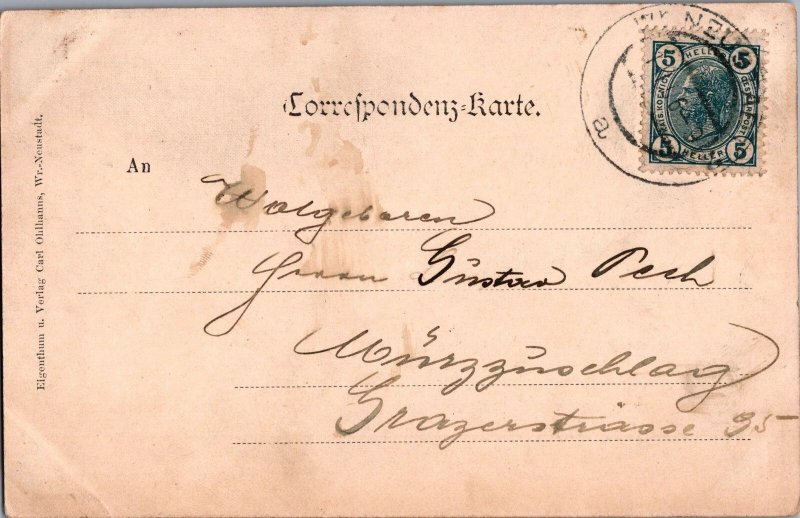 WR. NEU
a
5 HELLER 5
5 HELLER 5
Correspondenz-Karte.
An
Wolgeboren
Herrn Gustav Pech
Mürzzuschlag
Grazerstrasse 95
Eigenthum u. Verlag Carl Ohlhanns, Wr.-Neustadt.